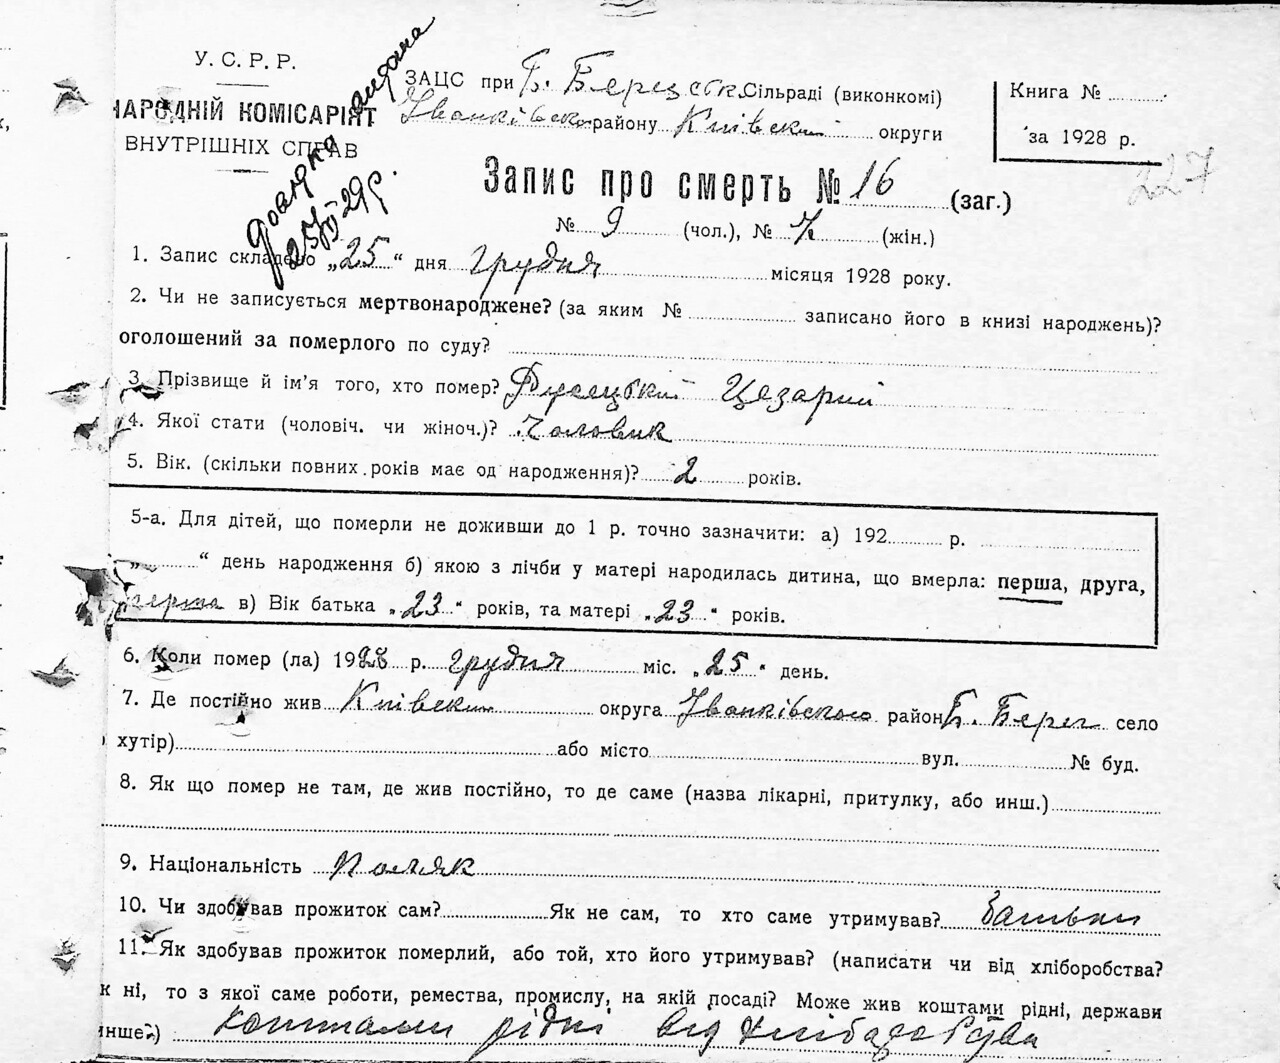 У. С. Р. Р.
НАРОДНІЙ КОМІСАРІЯТ
ВНУТРІШНІХ СПРАВ
Довідка видана
25/VII 29 р.
ЗАЦС при Б. Берецськ. Сільраді (виконкомі)
Іванківськ. району Київськ. округи
Книга №
за 1928 р.
227
Запис про смерть № 16 (заг.)
№ 9 (чол.), № 7 (жін.)
1. Запис складено „25“ дня грудня місяця 1928 року.
2. Чи не записується мертвонароджене? (за яким № записано його в книзі народжень)?
оголошений за померлого по суду?
3. Прізвище й ім’я того, хто помер? Цезарий
4. Якої стати (чоловіч. чи жіноч.)? Чоловик
5. Вік. (скільки повних років має од народження)? 2 років.
5-а. Для дітей, що померли не доживши до 1 р. точно зазначити: а) 192 р.
„ “ день народження б) якою з лічби у матері народилась дитина, що вмерла: перша, друга,
перша в) Вік батька „23“ років, та матері „23“ років.
6. Коли помер (ла) 1928 р. грудня міс. „25“ день.
7. Де постійно жив Київськи округа Іванківського район Б. Берег село
хутір) або місто вул. № буд.
8. Як що помер не там, де жив постійно, то де саме (назва лікарні, притулку, або инш.)
9. Національність Поляк
10. Чи здобував прожиток сам? Як не сам, то хто саме утримував? Батьки
11. Як здобував прожиток померлий, або той, хто його утримував? (написати чи від хліборобства?
к ні, то з якої саме роботи, ремества, промислу, на якій посаді? Може жив коштами рідні, держави
инше.) коштами рідні від хліборобства